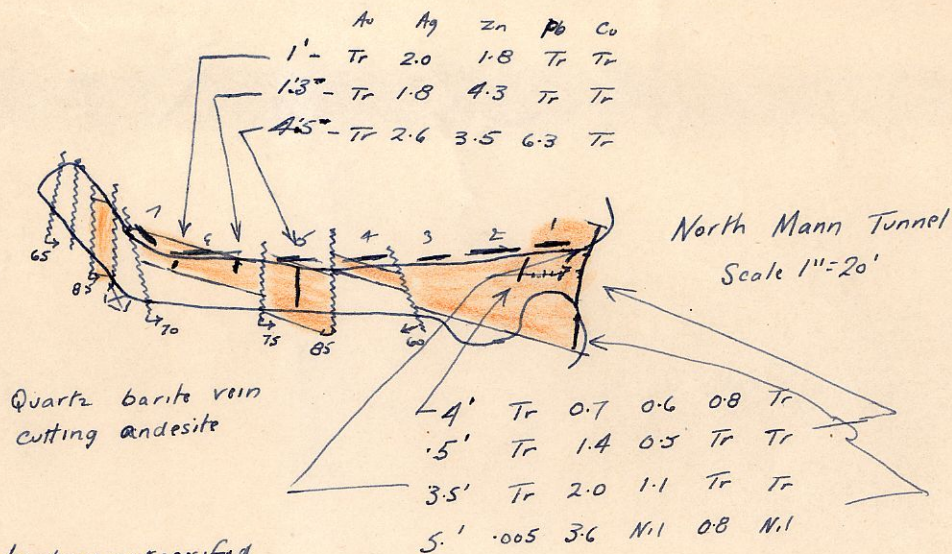 Au Ag Zn Pb Cu
1' - Tr 2.0 1.8 Tr Tr
1'.3" - Tr 1.8 4.3 Tr Tr
4'.5" - Tr 2.6 3.5 6.3 Tr
7 6 5 4 3 2 1
North Mann Tunnel
Scale 1"=20'
65
85
70
75
85
60
Quartz barite vein
cutting andesite
4' Tr 0.7 0.6 0.8 Tr
.5' Tr 1.4 0.5 Tr Tr
3.5' Tr 2.0 1.1 Tr Tr
5.' .005 3.6 Nil 0.8 Nil